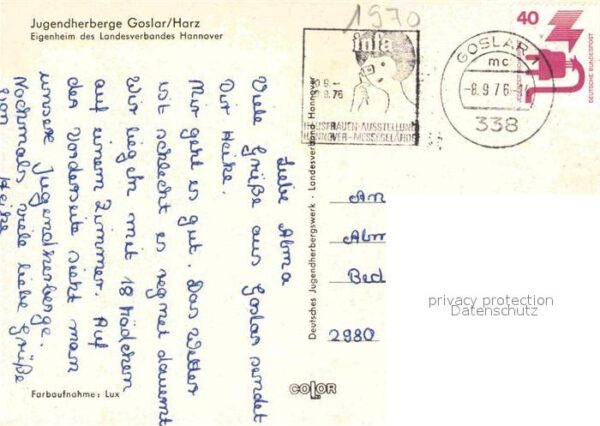 Jugendherberge Goslar/Harz
Eigenheim des Landesverbandes Hannover
1970
infa
9.76
HAUSFRAUEN-AUSSTELLUNG
HANNOVER-MESSEGELÄNDE
GOSLAR 1
mc
-8.9.76-
338
40
DEUTSCHE BUNDESPOST
Liebe Alma
Viele Grüße aus Goslar sendet
Dir Heike.
Mir geht es gut. Das Wetter
ist schlecht es regnet dauernt
Wir liegen mit 18 Mädchen
auf einem Zimmer. Auf
der Vorderseite sieht man
unsere Jugendherberge.
Nochmals viele liebe Grüße
Heike
Deutsches Jugendherbergswerk · Landesverband Hannover
An
Alm
Bed
2980
privacy protection
Datenschutz
Farbaufnahme: Lux
COLOR